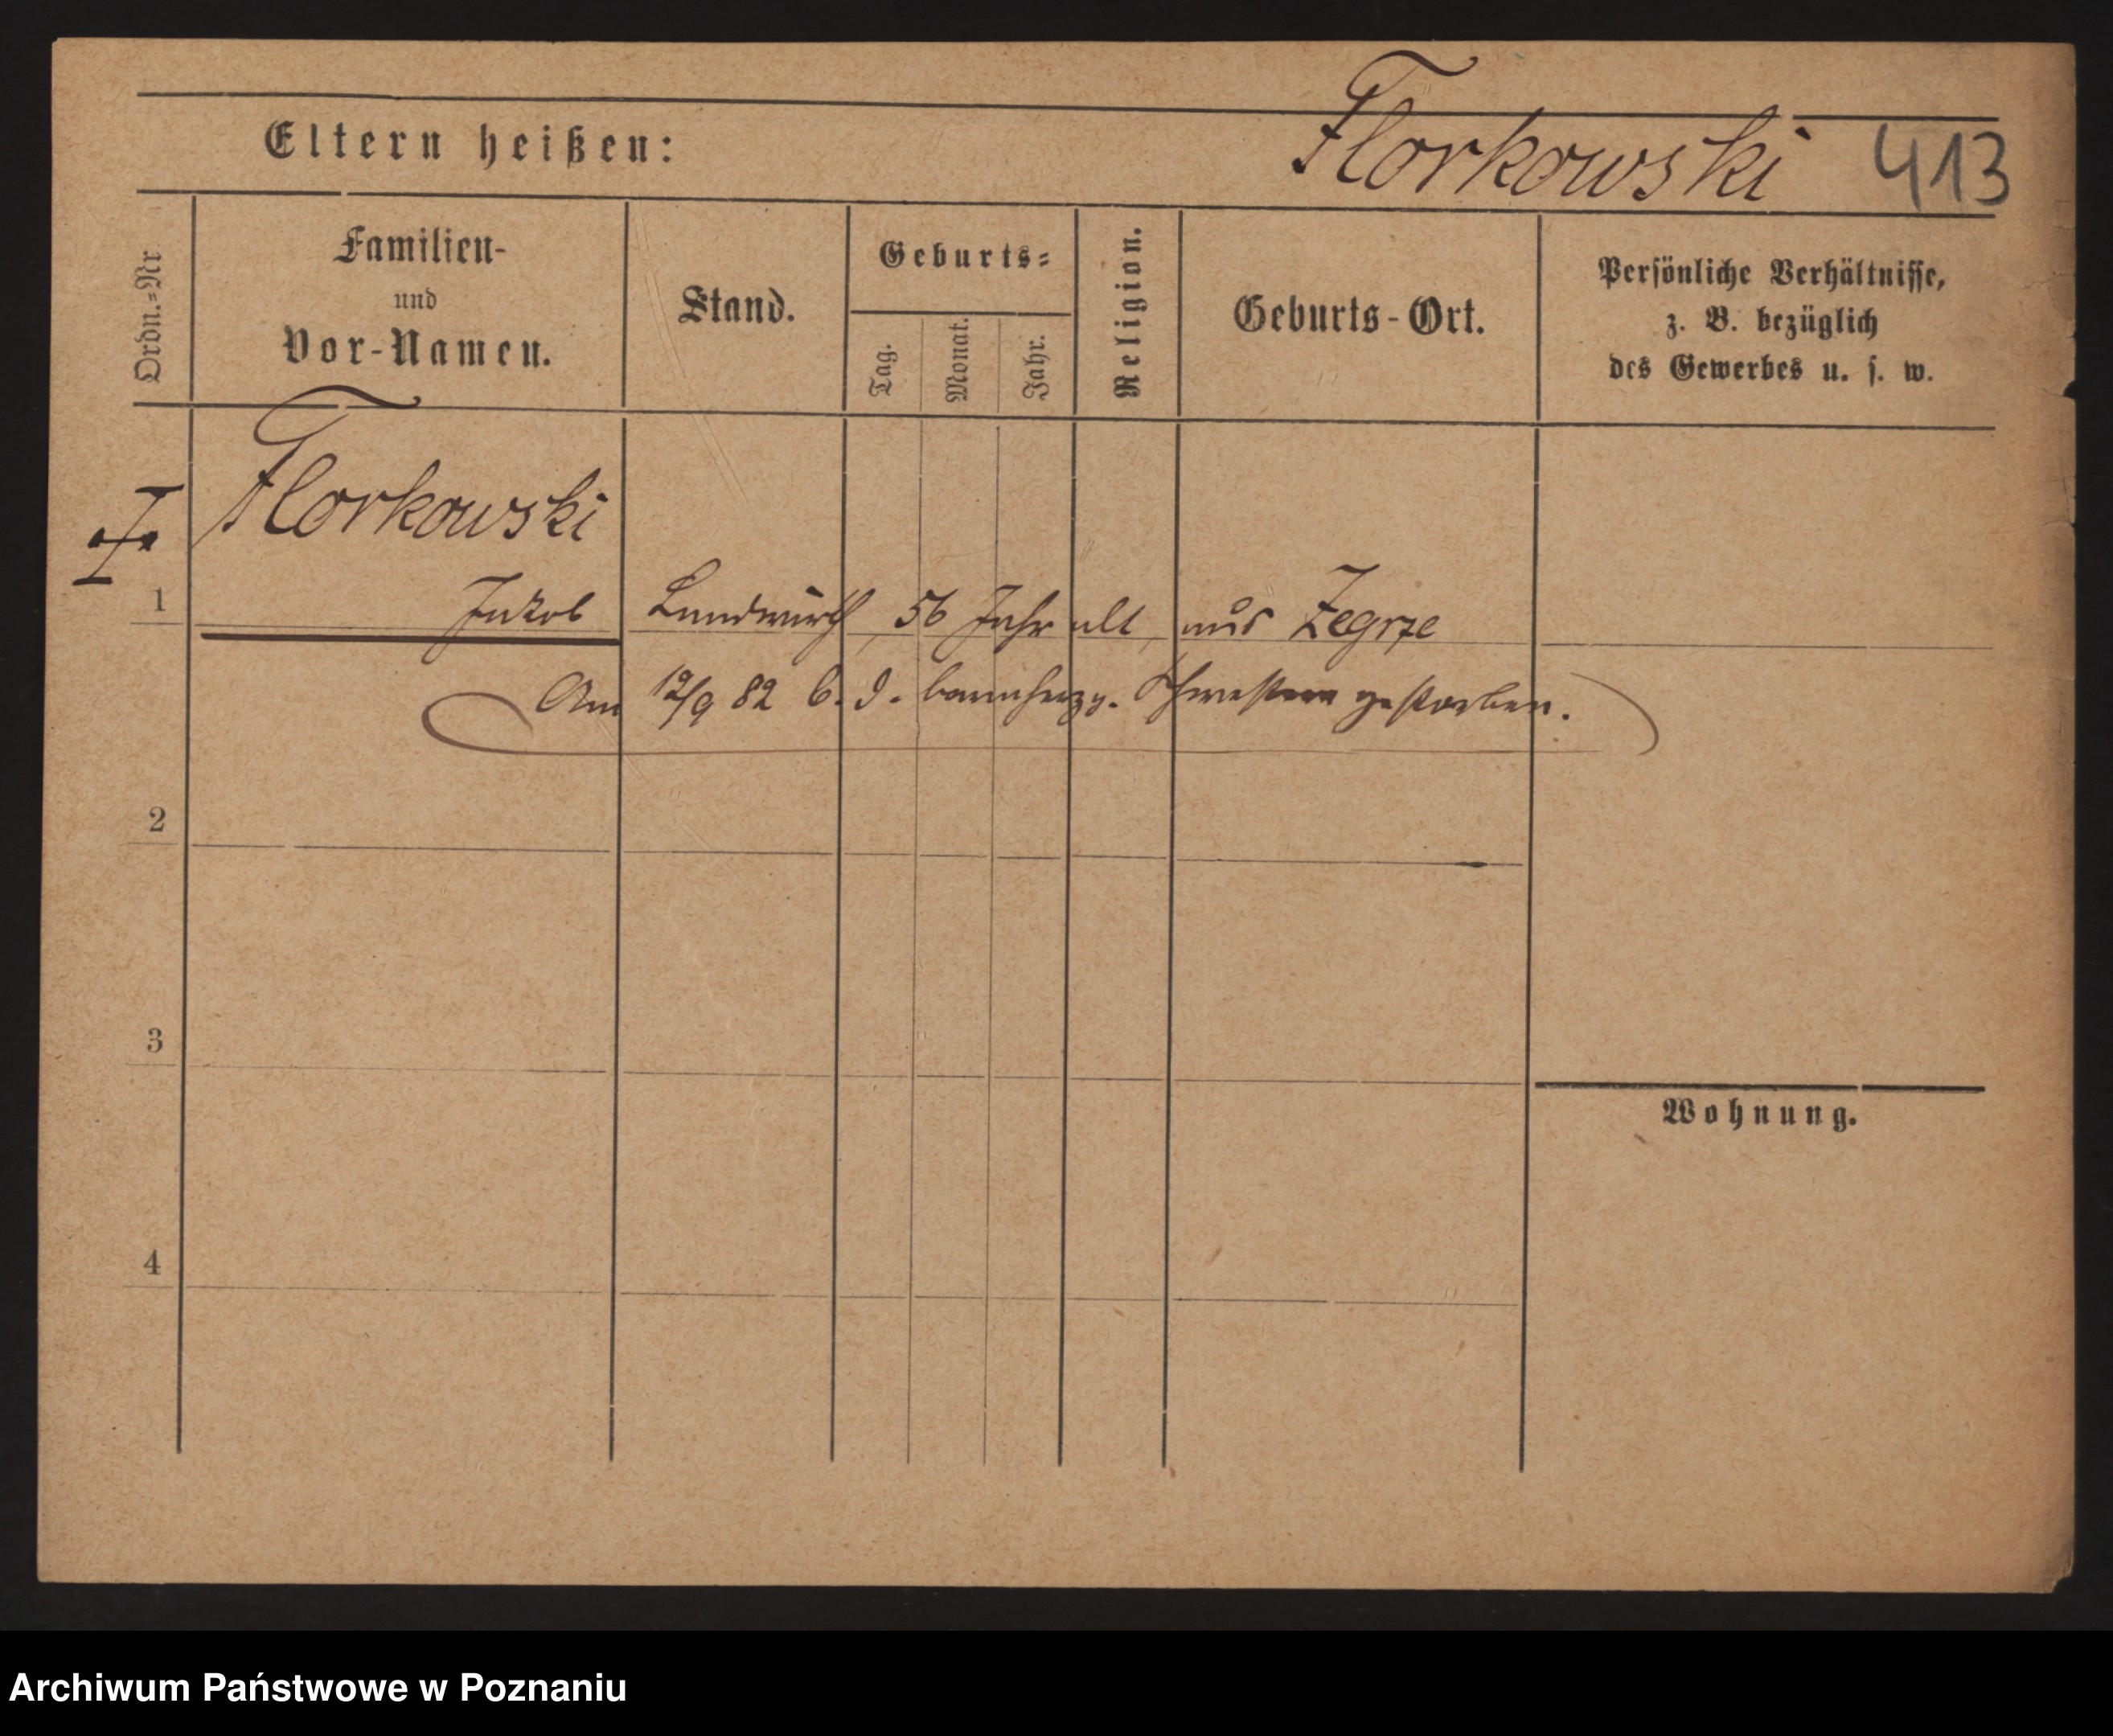 Eltern heißen:
Florkowski 413
Ordn.=Nr
Familien-
und
Vor-Namen.
Stand.
Geburts=
Tag.
Monat.
Jahr.
Religion.
Geburts-Ort.
Persönliche Verhältnisse,
z. B. bezüglich
des Gewerbes u. s. w.
Florkowski
1 Jakob Landwirth, 56 Jahr alt, aus Zegrze
Am 19/9 82 b. d. barmherzg. Schwestern gestorben.
2
3
Wohnung.
4
Archiwum Państwowe w Poznaniu